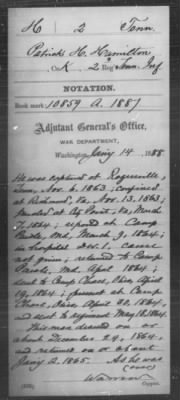 H 2 Tenn
Patrick H. Hamilton
Co. K 2 Reg't Tenn. Inf
NOTATION.
Book mark 10859 A. 1887
Adjutant General's Office,
WAR DEPARTMENT,
Washington, Jany 14 1888
He was captured at Rogersville,
Tenn., Nov. 6. 1863; confined
at Richmond, Va., Nov. 13. 1863;
paroled at City Point, Va., March
7, 1864; reported at Camp
Parole, Md., March 9, 1864;
in hospital Div. 1, cause
not given; returned to Camp
Parole, Md., April 1864;
sent to Camp Chase, Ohio, April
19, 1864; present at Camp
Chase, Ohio, April 30, 1864,
and sent to regiment May 1864
This man deserted on or
about December 29, 1864,
and returned on or about
Jany 2. 1865. As he was
(over)
Copyist.